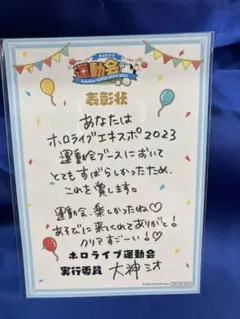 運動会
表彰状
あなたは
ホロライブエキスポ2023
運動会ブースにおいて
とてもすばらしかったため、
これを賞します。
運動会、楽しかったね♡
あそびに来てくれてありがと!
クリアすごーい!♡
ホロライブ運動会
実行委員 大神ミオ